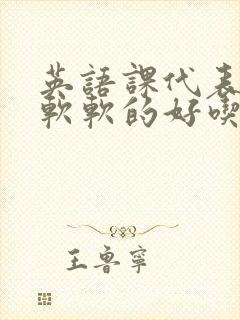 英語課代表
軟軟的好喫
王魯寧